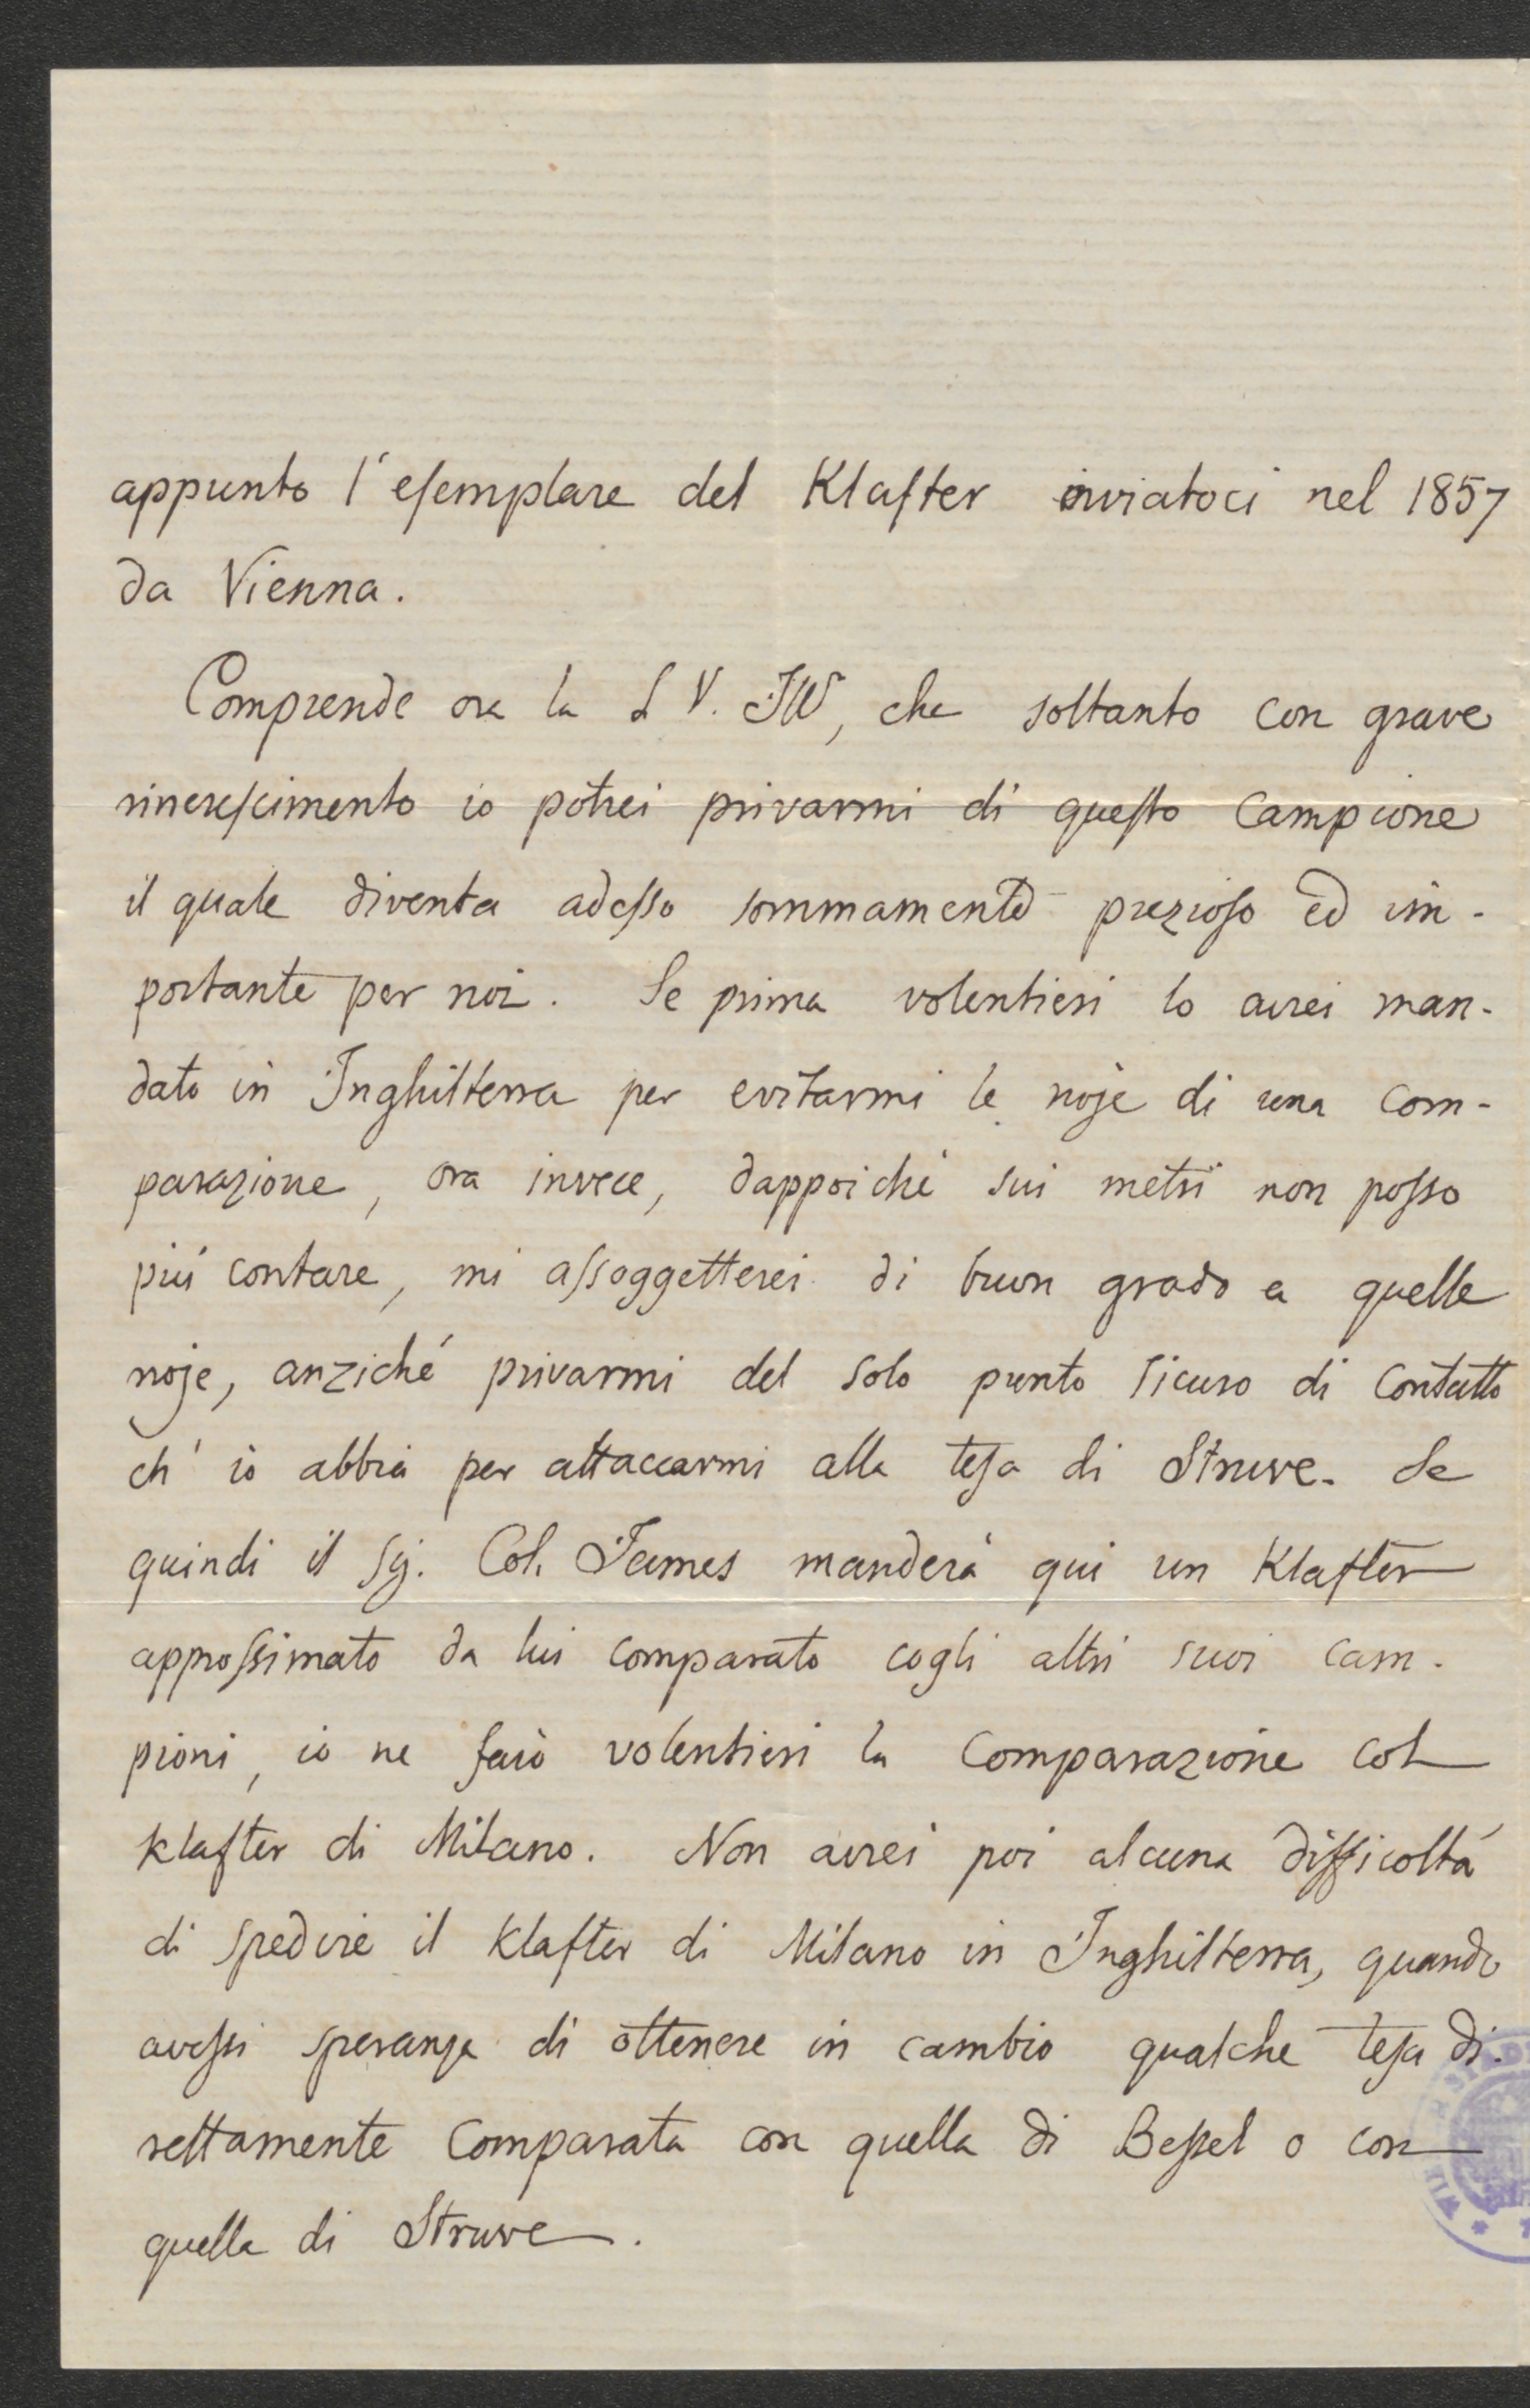 appunto l'esemplare del Klafter inviatoci nel 1857
da Vienna.
Comprende ora la S V. Ill, che soltanto con grave
rincrescimento io potrei privarmi di questo campione
il quale diventa adesso sommamente prezioso ed im-
portante per noi. Se prima volentieri lo avrei man-
dato in Inghilterra per evitarmi le noje di una com-
parazione, ora invece, dappoiché sui metri non posso
piú contare, mi assoggetterei di buon grado a quelle
noje, anziché privarmi del solo punto sicuro di contatto
ch' io abbia per attaccarmi alla tesa di Struve. Se
quindi il Sg. Col. James manderà qui un Klafter
approssimato da lui comparato cogli altri suoi cam-
pioni, io ne farò volentieri la comparazione col
Klafter di Milano. Non avrei poi alcuna difficoltá
di spedire il Klafter di Milano in Inghilterra, quando
avessi speranza di ottenere in cambio qualche tesa di-
rettamente comparata con quella di Bessel o con
quella di Struve.